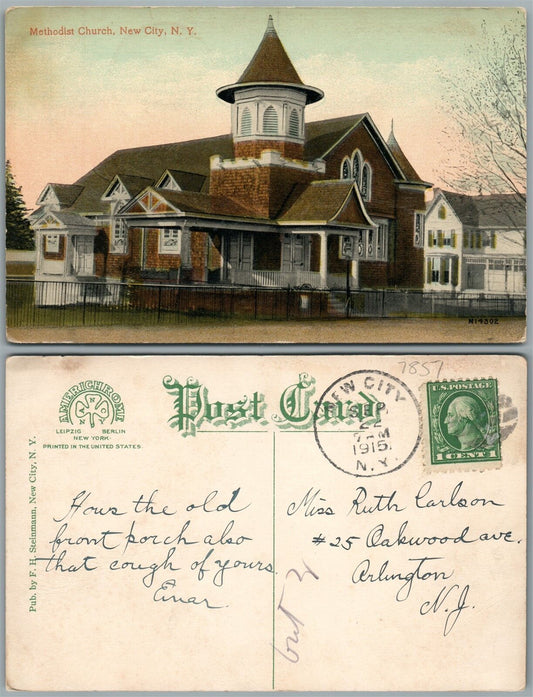 Methodist Church, New City, N. Y.
N14302
AMERICHROME
LEIPZIG BERLIN
NEW YORK
PRINTED IN THE UNITED STATES
Post Card
NEW CITY
SEP
22
7 - M
1915
N.Y.
7857
U.S. POSTAGE
1 CENT 1
Pub. by F. H. Steinmann, New City, N. Y.
Hows the old
front porch also
that cough of yours.
Einar.
Miss Ruth Carlson
#25 Oakwood ave.
Arlington
N.J.